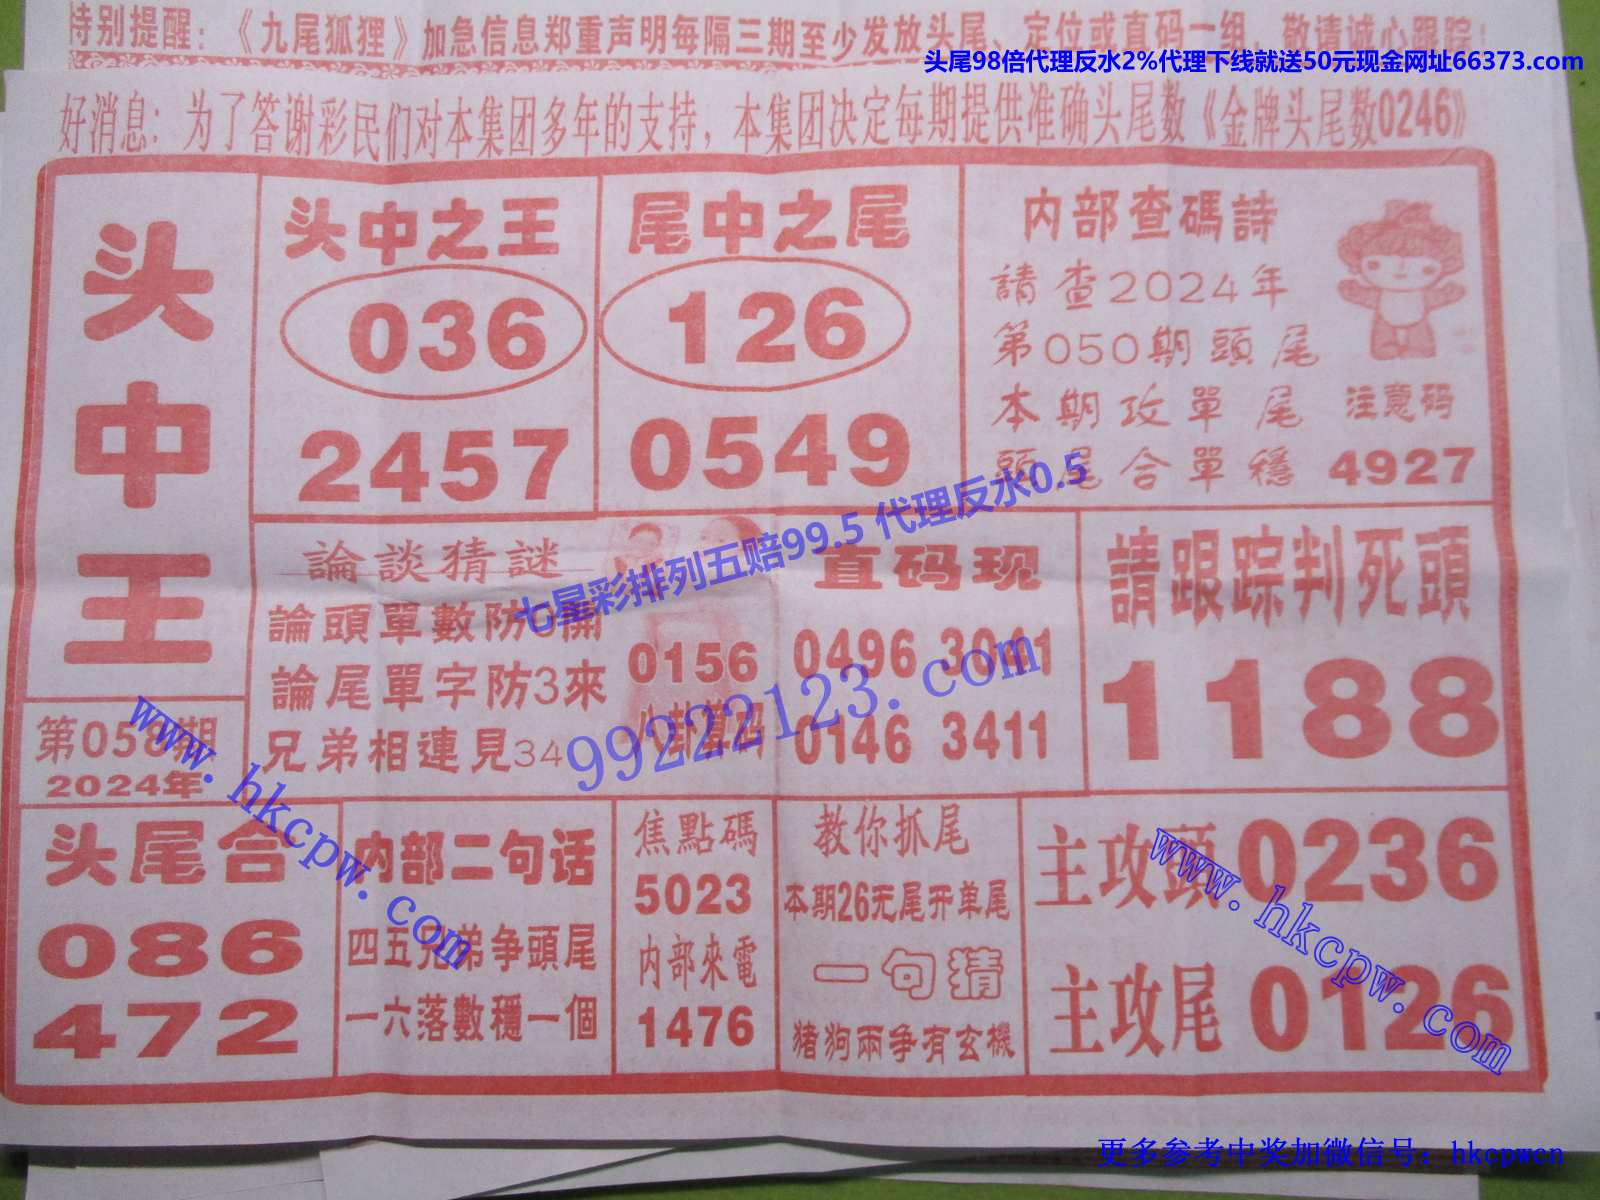 特别提醒：《九尾狐狸》加急信息郑重声明每隔三期至少发放头尾、定位或真码一组，敬请诚心跟踪！
头尾98倍代理反水2%代理下线就送50元现金网址66373.com
好消息：为了答谢彩民们对本集团多年的支持，本集团决定每期提供准确头尾数《金牌头尾数0246》
头中王
第058期
2024年
头中之王
036
2457
尾中之尾
126
0549
内部查碼詩
請查2024年
第050期頭尾
本期攻單尾
頭尾合單穩
注意码
4927
七星彩排列五赔99.5 代理反水0.5
論談猜謎
論頭單數防
論尾單字防3來
兄弟相連見34
0156
八卦算码
直码现
0496 3041
0146 3411
99222123.com
請跟踪判死頭
1188
www.hkcpw.com
头尾合
086
472
内部二句话
四五兄弟争頭尾
一六落數穩一個
焦點碼
5023
内部來電
1476
教你抓尾
本期26无尾开单尾
一句猜
猪狗兩争有玄機
主攻頭0236
主攻尾0126
www.hkcpw.com
更多参考中奖加微信号：hkcpwcn